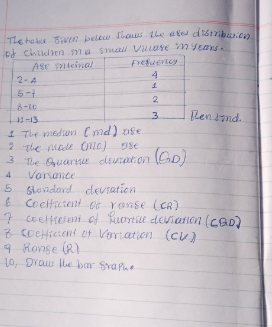 The table given below shows the ages distribution
of Children in a small Village in Years.
Age interval Frequency
2-4 4
5-7 1
8-10 2
11-13 3 then find.
1 The median (md) age
2 The mode (mo) age
3 The Quartile deviation (QD)
4 Variance
5 Standard deviation
6 Coefficient of range (CR)
7 Coefficient of Quartile deviation (CQD)
8 Coefficient of Variation (CV)
9 Range (R)
10, Draw the bar Graphs